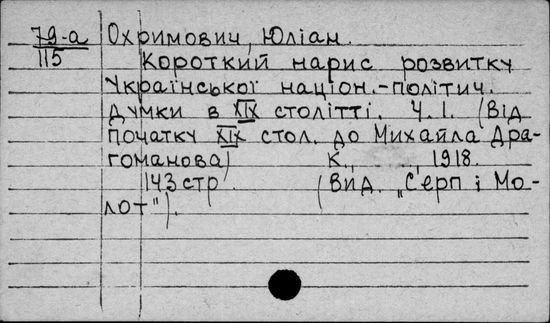 79-а Охримович, Юліан.
115 Короткий нарис розвитку
Української націон.-політич.
думки в XIX столітті. Ч.1. (Від
початку XIX стол. до Михайла Дра-
гоманова) К., 1918.
143 стр. (Вид. "Серп і Мо-
лот").